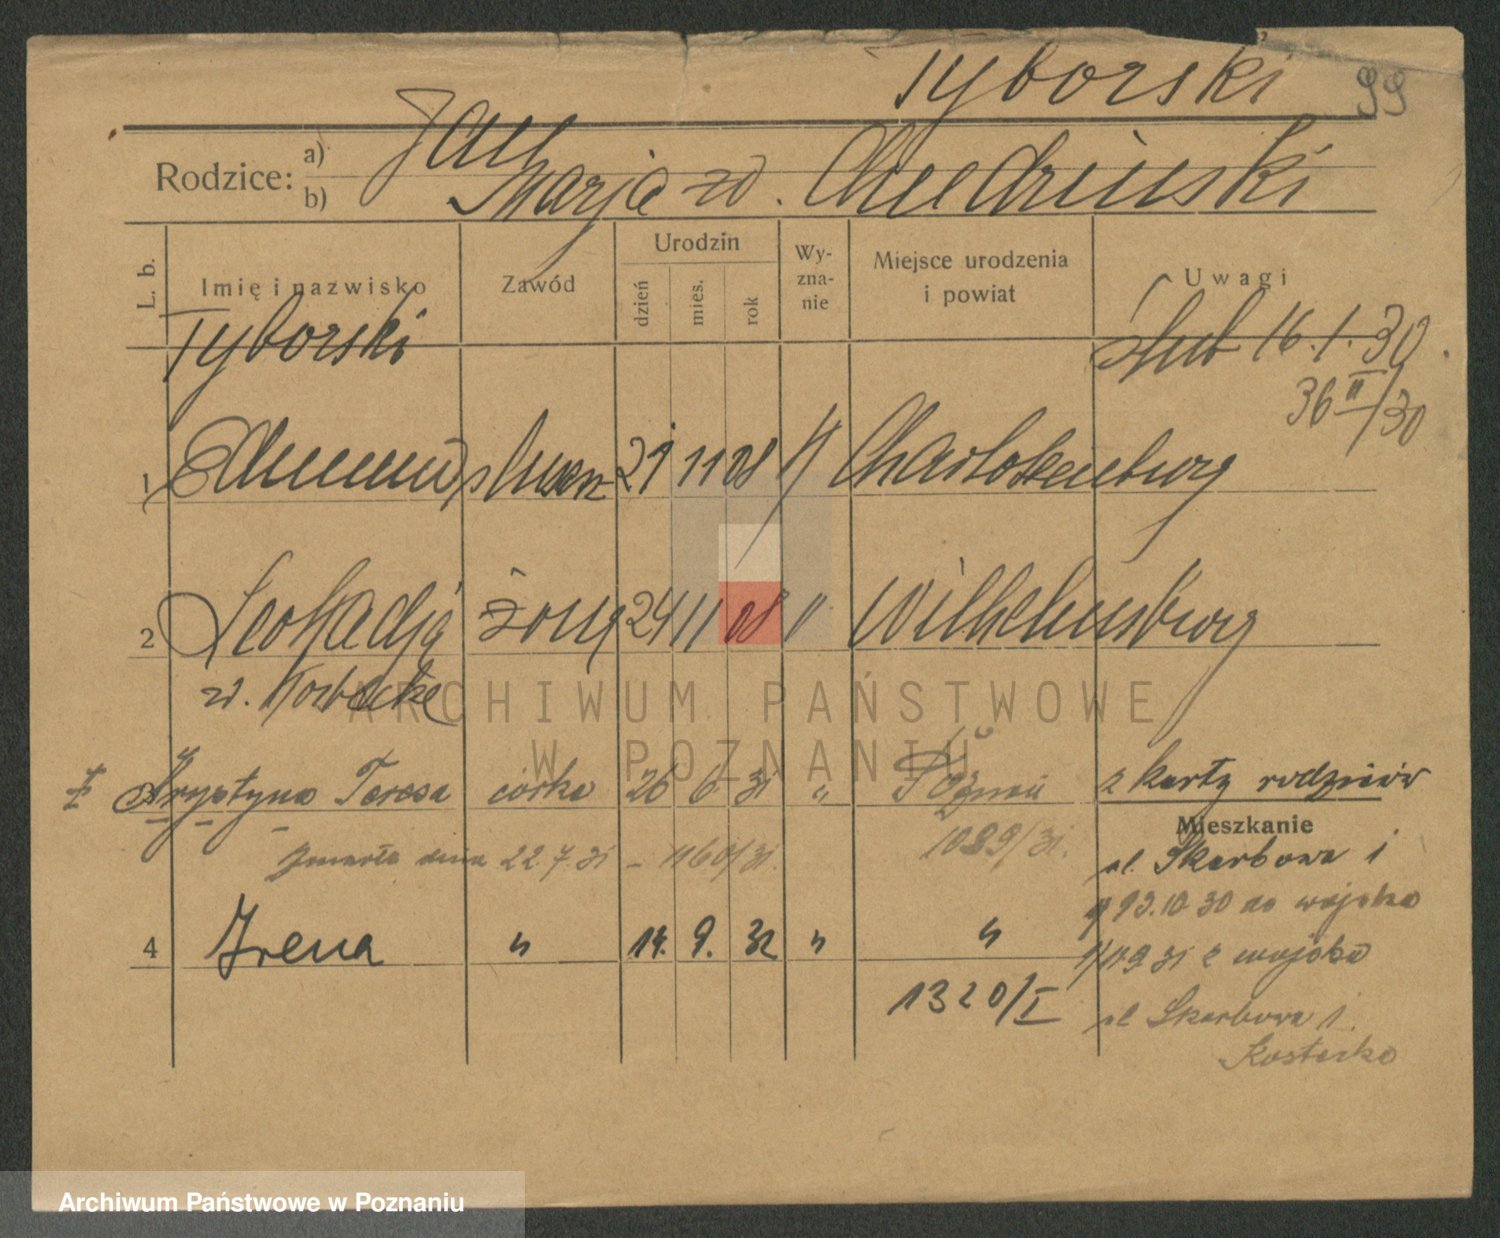 Tyborski 99
Rodzice: a) Jan
b) Marja zd.
L. b. Imię i nazwisko Zawód Urodzin dzień mies. rok Wyznanie Miejsce urodzenia i powiat Uwagi
Tyborski ślub 16.1.30
36 II/30
1 Edmund ślusarz 29 11 08 Charlottenburg
2 Leokadja żona 24 11 08 " Wilhelmsburg
zd.
ARCHIWUM PAŃSTWOWE
W POZNANIU
Krystyna Teresa córka 26 6. 31 " Poznań z karty rodziców
1089/31.
Mieszkanie
zmarła dnia 22 7 31 – 1160/31.
ul. Skarbowa 1
10 30 do wojska
4 Irena " 14. 9. 32 " "
9 31 z wojska
1320/I
ul Skarbowa 1.
Kostecka
Archiwum Państwowe w Poznaniu